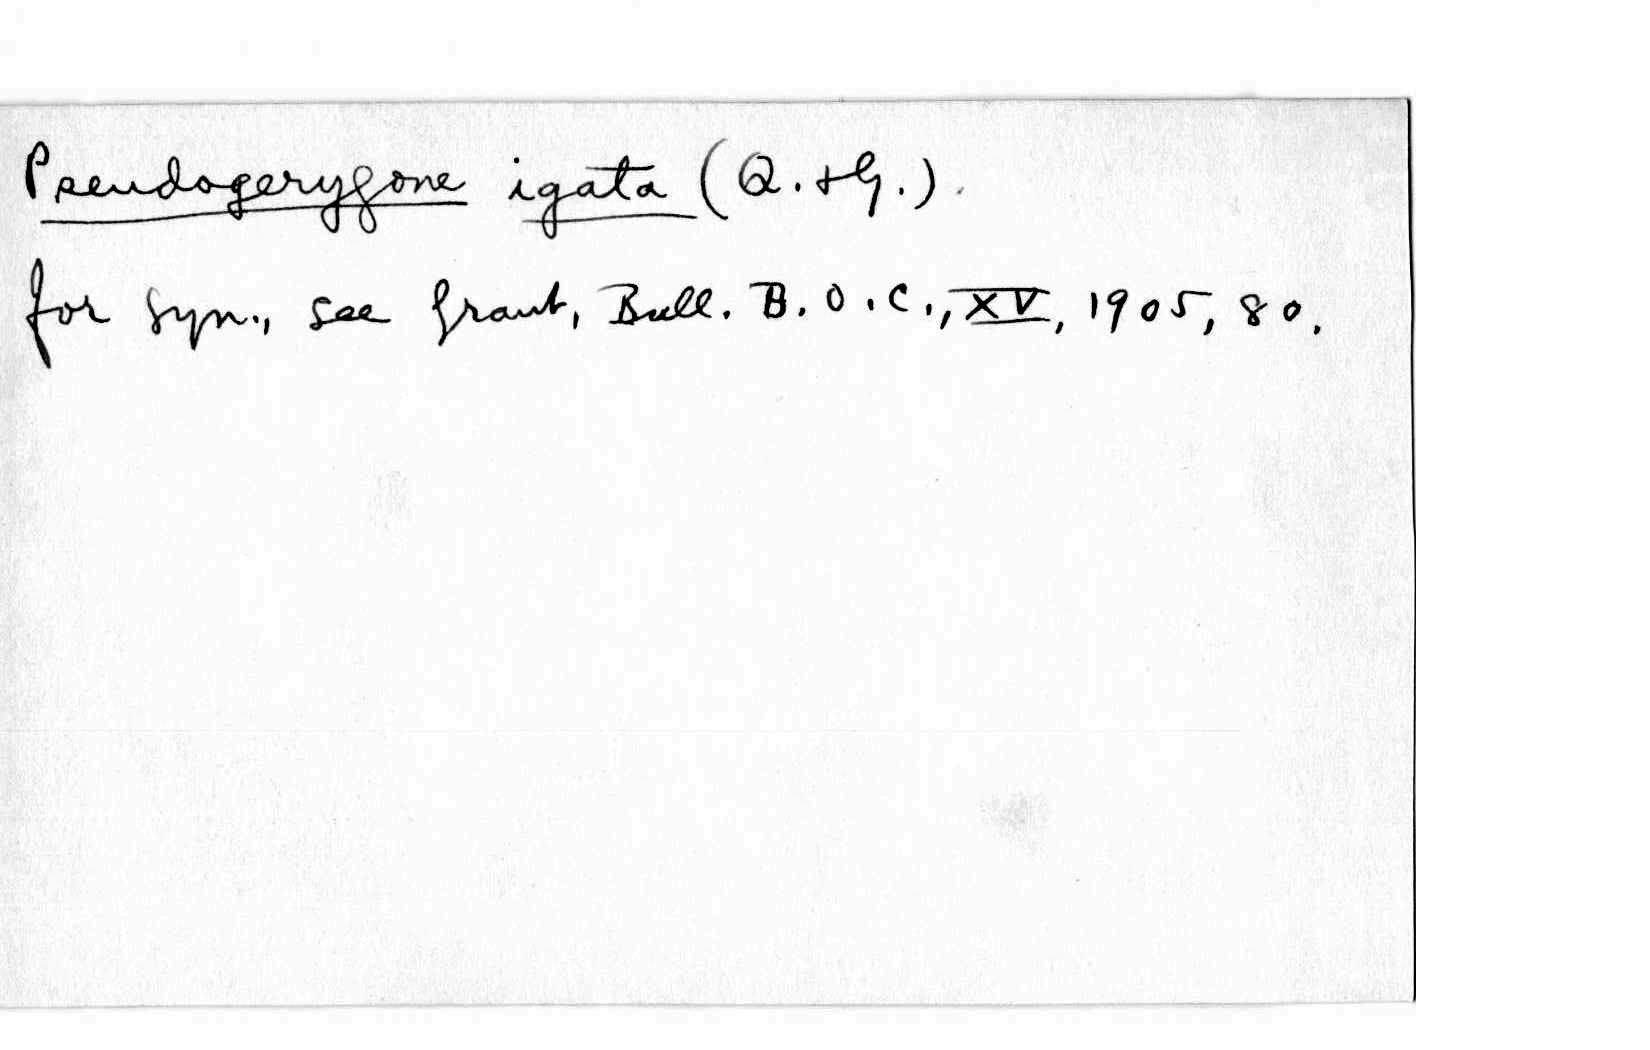 Pseudogerygone igata (Q. + G.).
for syn., see Grant, Bull. B.O.C., XV, 1905, 80.